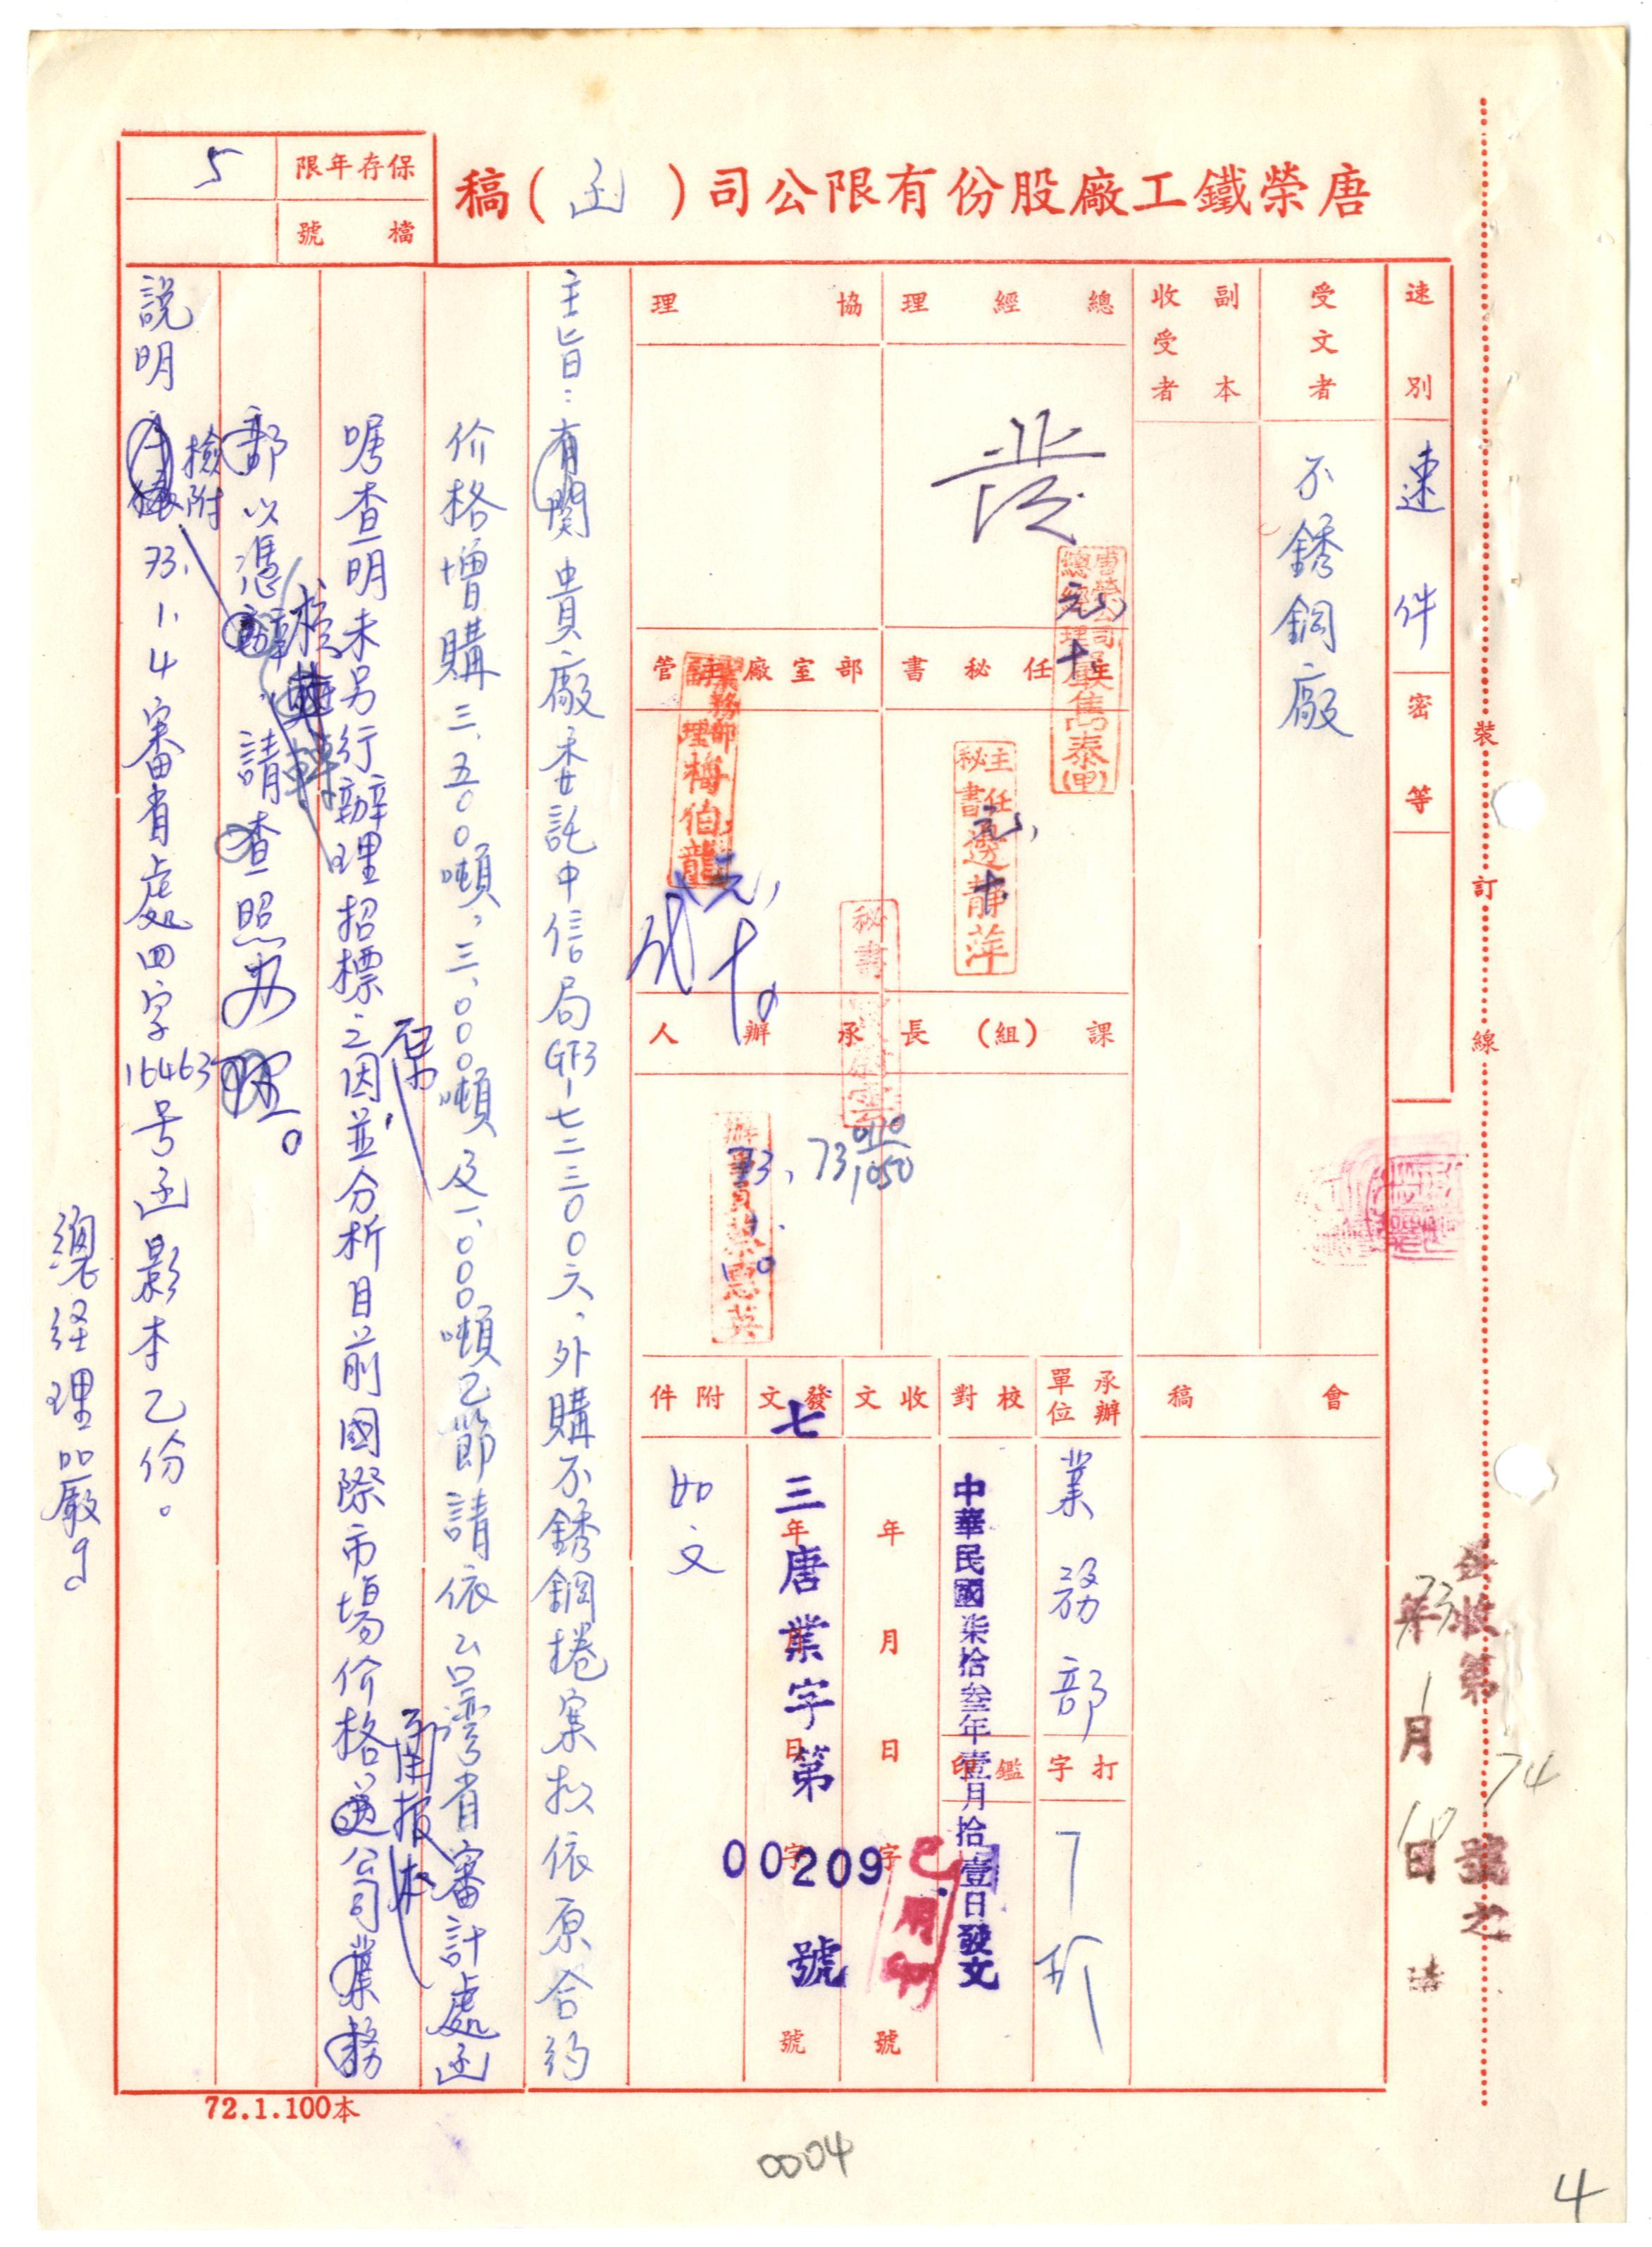 唐榮鐵工廠股份有限公司(函)稿
保存年限 5
檔號
速別 速件
密等
受文者 不銹鋼廠
副本收受者
總經理
協理
發
主任秘書
部室廠主管
課(組)長
承辦人
唐榮公司總經理嚴雋泰(甲)
元
主任秘書邊靜萍
元
業務部副理梅伯龍
元
十
73.
會稿
承辦單位 業務部
打字
校對
監印
收文 年 月 日 字 號
發文 年 月 日 字 號
附件 如文
中華民國柒拾叁年壹月拾壹日發文
已用印
七三唐業字第
00209
號
主旨:有關貴廠委託中信局GF3-七二三00六、外購不銹鋼捲案擬依原合約
价格增購三、五00噸,三、000噸及一、000噸乙節請依台灣省審計處函
囑查明未另行辦理招標之原因並分析目前國際市場价格函報本公司業務
部以憑核轉,請查照办理。
說明:檢附73.1.4審省處四字16463号函影本乙份。
總經理 嚴
裝
訂
線
收第 74 號之
73年1月10日
72.1.100本
0004
4